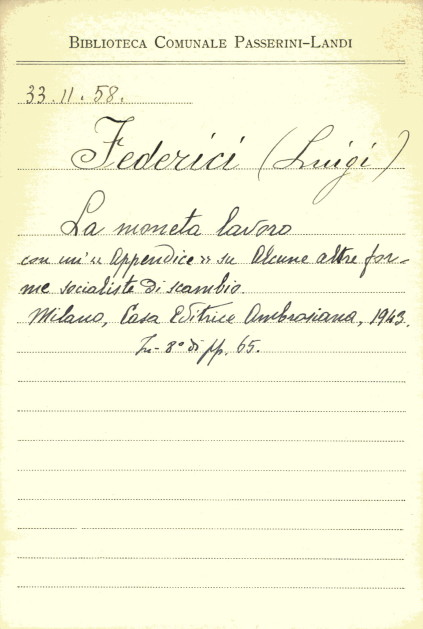 BIBLIOTECA COMUNALE PASSERINI-LANDI
33.11.58.
Federici (Luigi)
La moneta lavoro
con un'« Appendice » su Alcune altre for-
me socialiste di scambio.
Milano, Casa Editrice Ambrosiana, 1943.
In-8° di pp. 65.